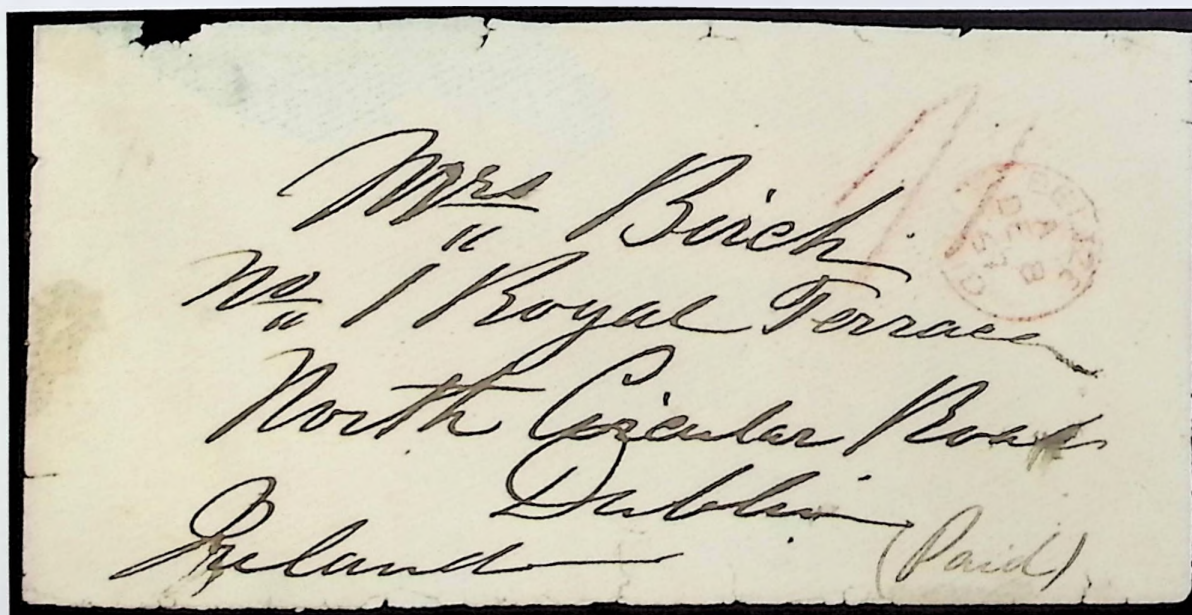 Mrs Birch
No 1 Royal Terrace
North Circular Road
Dublin
Ireland
(Paid)
A
DE 8
57